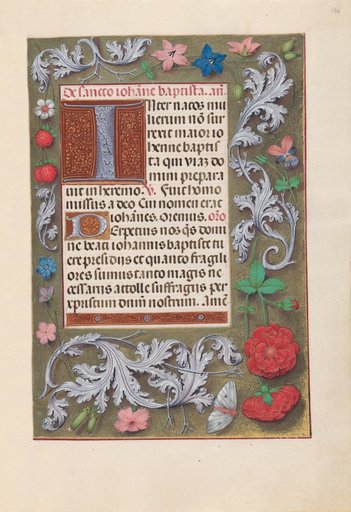 De sancto iohāne baptista. añ.
Inter natos mu
lierum nō sur
rexit maior io
hanne baptis
ta qui viaz do
mini prepara
uit in heremo. V. Fuit homo
missus a deo Cui nomen erat
iohānes. Oremus. oro
Perpetuis nos qs domi
ne beati iohannis baptiste tu
ere presidijs et quanto fragili
ores sumus tanto magis ne
cessarijs attolle suffragijs Per
xpristum dnūm nostrum. Amē